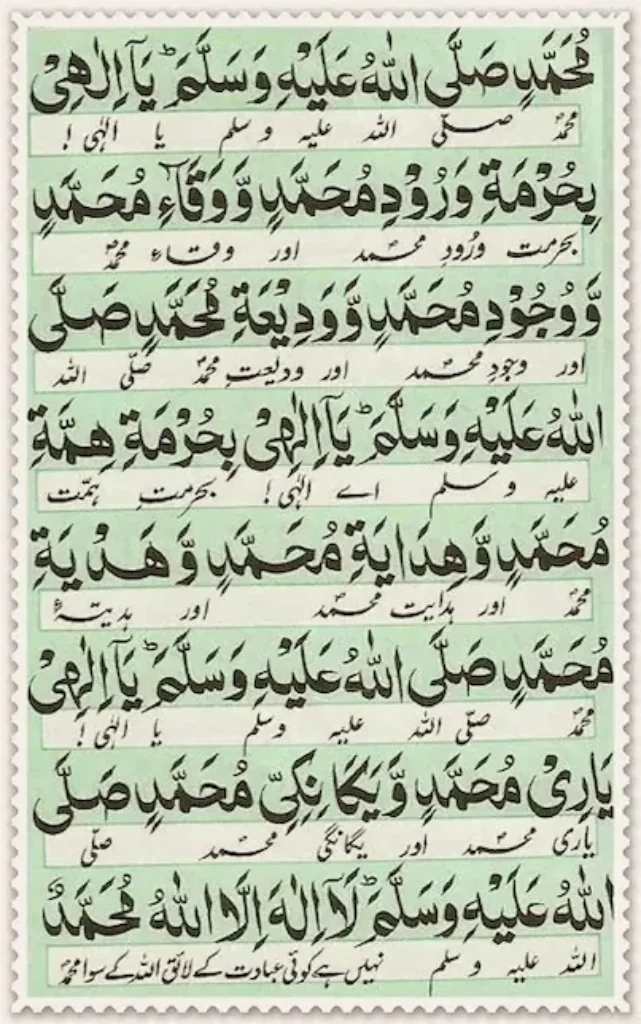 مُحَمَّدٍ صَلَّى اللهُ عَلَيْهِ وَسَلَّمَ ؕ يَآ اِلٰهِىْ
محمدؐ صلّی اللہ علیہ وسلم یا الٰہی !
بِحُرْمَةِ وَرُوْدِ مُحَمَّدٍ وَّوَقَآءِ مُحَمَّدٍ
بحرمت ورُودِ محمدؐ اور وقاء محمدؐ
وَّوُجُوْدِ مُحَمَّدٍ وَّوَدِيْعَةِ مُحَمَّدٍ صَلَّى
اور وجودِ محمدؐ اور ودیعتِ محمدؐ صلّی اللہ
اللهُ عَلَيْهِ وَسَلَّمَ ؕ يَآ اِلٰهِىْ بِحُرْمَةِ هِمَّةِ
علیہ وسلم اے الٰہی ! بحرمتِ ہمّت
مُحَمَّدٍ وَّهِدَايَةِ مُحَمَّدٍ وَّ هَدْيَةِ
محمدؐ اور ہدایت محمدؐ اور ہدیتہٴ
مُحَمَّدٍ صَلَّى اللهُ عَلَيْهِ وَسَلَّمَ ؕ يَآ اِلٰهِىْ
محمدؐ صلّی اللہ علیہ وسلم یا الٰہی !
يَارِىْ مُحَمَّدٍ وَّيَكَانِكِىّ مُحَمَّدٍ صَلَّى
یاری محمدؐ اور یگانگی محمدؐ صلّی
اللهُ عَلَيْهِ وَسَلَّمَ ؕ لَآ اِلٰهَ اِلَّا اللهُ مُحَمَّدٌ
اللہ علیہ وسلم نہیں ہے کوئی عبادت کے لائق اللہ کے سوا محمدؐ